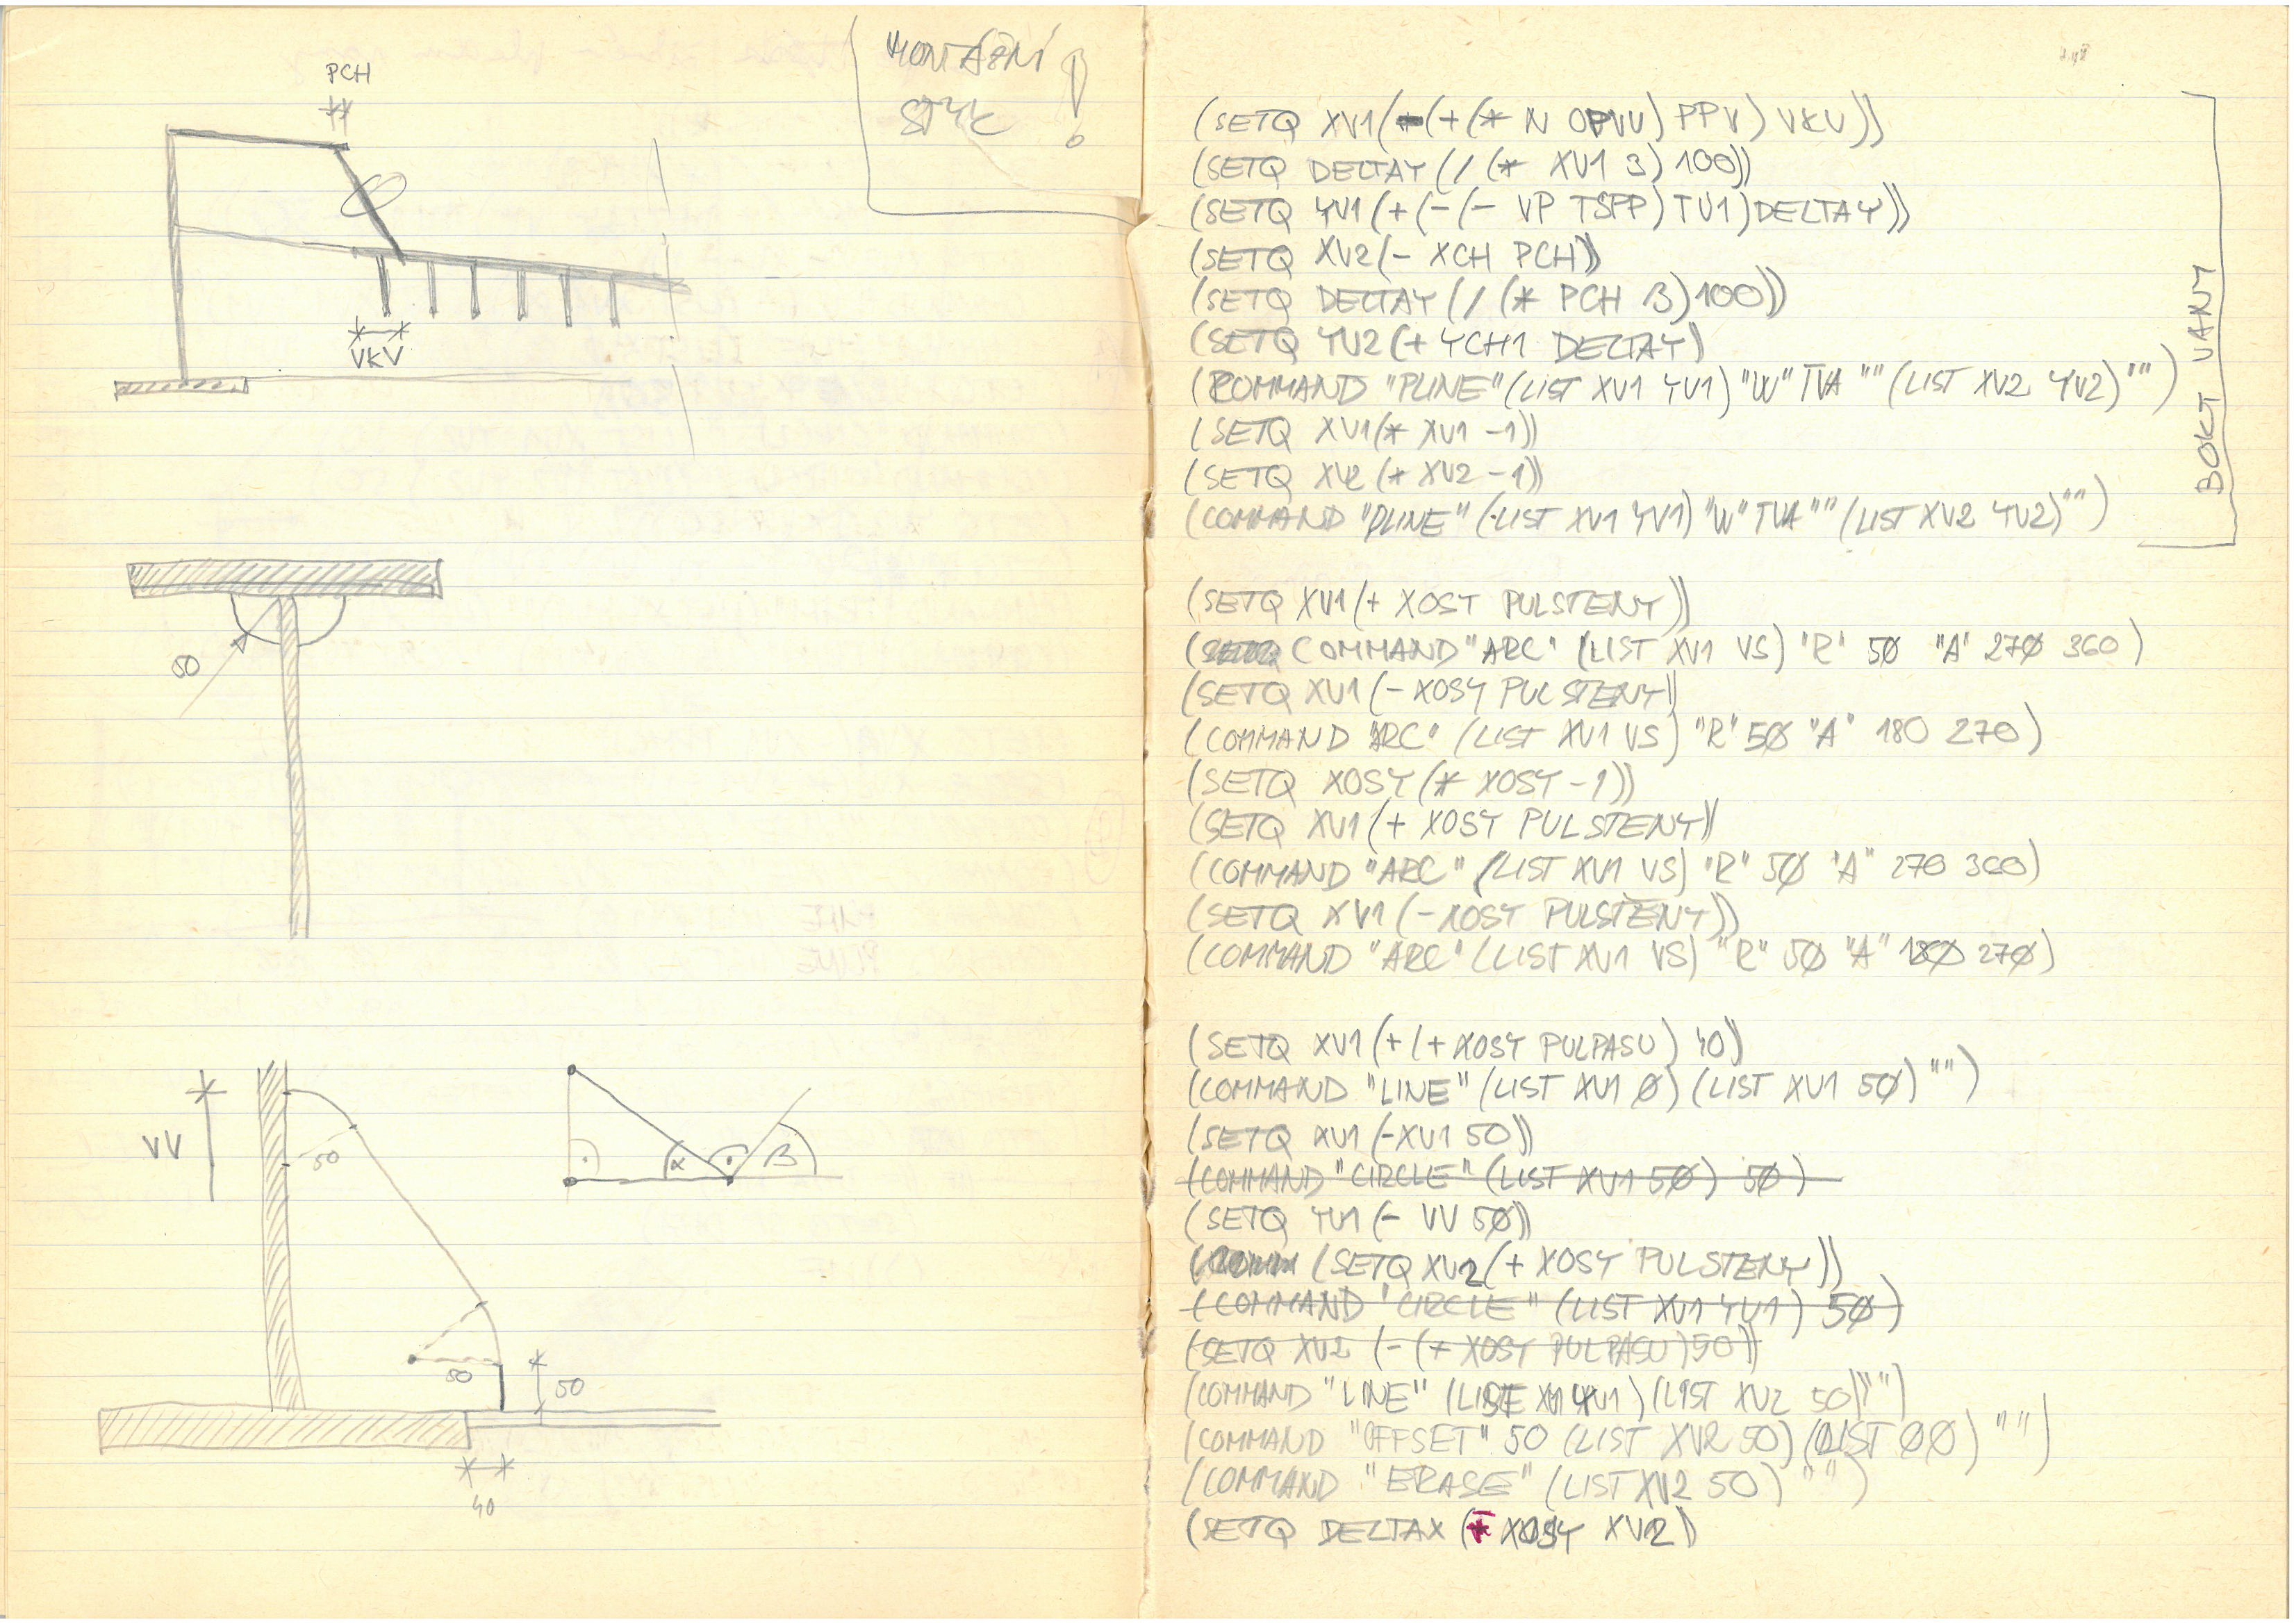 PCH
VKV
MONTÁŽNÍ
STYK !
50
VV
50
α
β
50
50
40
(SETQ XV1(+(* N OPVV) PPV) VKV))
(SETQ DELTAY (/ (* XV1 3) 100))
(SETQ YV1(+(-(- VP TSPP) TV1)DELTAY))
(SETQ XV2(- XCH PCH))
(SETQ DELTAY (/ (* PCH 3)100))
(SETQ YV2(+ YCH1 DELTAY)
(COMMAND "PLINE"(LIST XV1 YV1)"W"TVA ""(LIST XV2 YV2)"")
(SETQ XV1(* XV1 -1))
(SETQ XV2(* XV2 -1))
(COMMAND "PLINE"(LIST XV1 YV1)"W"TVA""(LIST XV2 YV2)"")
BOKY VANY
(SETQ XV1(+ XOSY PULSTENY))
(COMMAND "ARC" (LIST XV1 VS) "R" 5Ø "A" 27Ø 360)
(SETQ XV1(- XOSY PULSTENY))
(COMMAND "ARC" (LIST XV1 VS) "R" 5Ø "A" 180 270)
(SETQ XOSY(* XOSY -1))
(SETQ XV1(+ XOSY PULSTENY))
(COMMAND "ARC" (LIST XV1 VS) "R" 5Ø "A" 270 360)
(SETQ XV1(- XOSY PULSTENY))
(COMMAND "ARC"(LIST XV1 VS) "R" 5Ø "A" 18Ø 27Ø)
(SETQ XV1(+(+ XOSY PULPASU) 40))
(COMMAND "LINE"(LIST XV1 Ø)(LIST XV1 5Ø)"")
(SETQ XV1(-XV1 50))
(COMMAND "CIRCLE"(LIST XV1 5Ø) 5Ø)
(SETQ YV1(- VV 5Ø))
(SETQ XV2(+ XOSY PULSTENY))
(COMMAND "CIRCLE" (LIST XV1 YV1) 5Ø)
(SETQ XV2 (-(+ XOSY PULPASU)50))
(COMMAND "LINE" (LIST XV1 YV1)(LIST XV2 50)"")
(COMMAND "OFFSET" 50 (LIST XV2 50)(LIST ØØ) "")
(COMMAND "ERASE" (LIST XV2 50) "")
(SETQ DELTAX ( XOSY XV2))